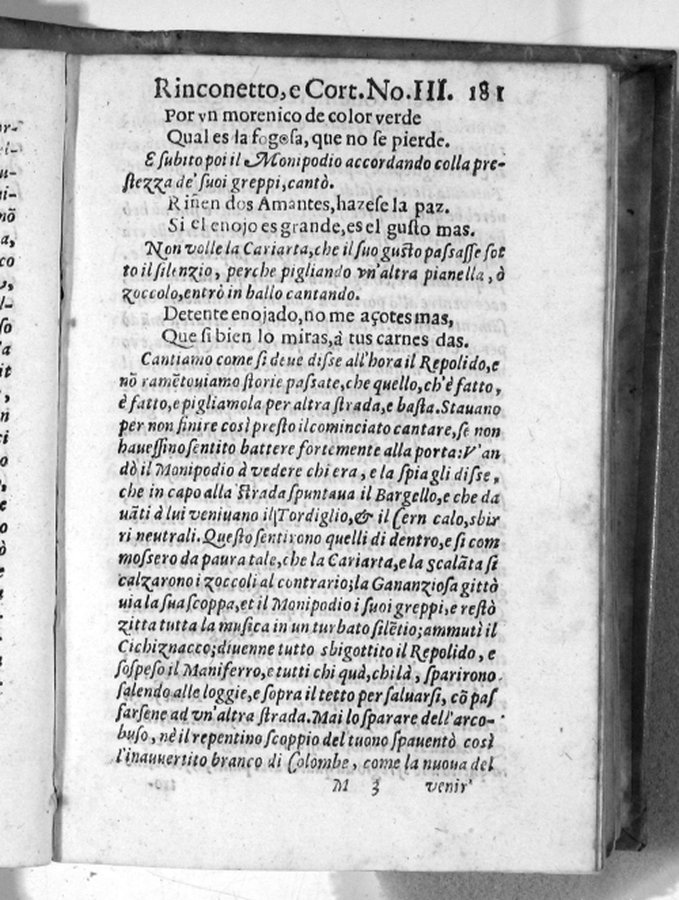 Rinconetto, e Cort. No. III. 181
Por vn morenico de color verde
Qual es la fogosa, que no se pierde.
E subito poi il Monipodio accordando colla pre-
stezza de' suoi greppi, cantò.
Riñen dos Amantes, hazese la paz.
Si el enojo es grande, es el gusto mas.
Non volle la Cariarta, che il suo gusto passasse sot
to il silenzio, perche pigliando vn'altra pianella, ò
zoccolo, entrò in ballo cantando.
Detente enojado, no me açotes mas,
Que si bien lo miras, à tus carnes das.
Cantiamo come si deue disse all'hora il Repolido, e
nõ ramẽtouiamo storie passate, che quello, ch'è fatto,
è fatto, e pigliamola per altra strada, e basta. Stauano
per non finire così presto il cominciato cantare, se non
hauessino sentito battere fortemente alla porta: V'an
dò il Monipodio à vedere chi era, e la spia gli disse,
che in capo alla strada spuntaua il Bargello, e che da
uãti à lui veniuano il Tordiglio, & il Cern calo, sbir
ri neutrali. Questo sentirono quelli di dentro, e si com
mossero da paura tale, che la Cariarta, e la scalãta si
calzarono i zoccoli al contrario; la Gananziosa gittò
uia la sua scoppa, et il Monipodio i suoi greppi, e restò
zitta tutta la musica in un turbato silẽtio; ammutì il
Cichiznacco; diuenne tutto sbigottito il Repolido, e
sospeso il Maniferro, e tutti chi quà, chi là, sparirono
salendo alle loggie, e sopra il tetto per saluarsi, cõ pas
sarsene ad vn'altra strada. Mai lo sparare dell'arco-
buso, nè il repentino scoppio del tuono spauentò così
l'inauuertito branco di Colombe, come la nuoua del
M 3 venir